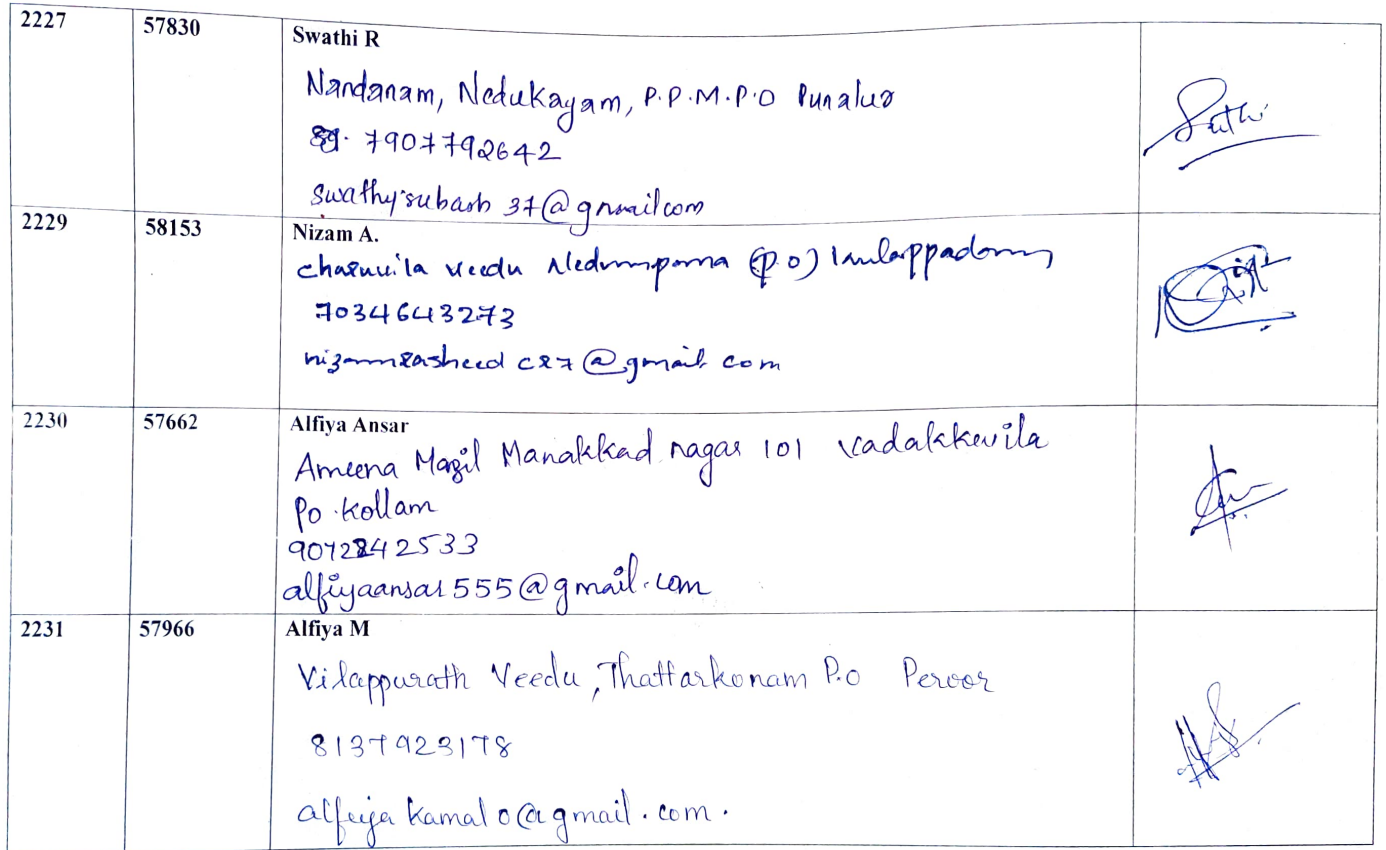 2227 57830 Swathi R
Nandanam, Nedukayam, P.P.M.P.O Punalur
7907792642
swathysubash37@gmailcom
2229 58153 Nizam A.
Charuvila veedu Nedumpana (p.o)
7034643273
nizamrasheed cr7@gmail.com
2230 57662 Alfiya Ansar
Ameena Mazil Manakkad nagar 101 vadakkevila
Po Kollam
9072842533
alfiyaansar555@gmail.com
2231 57966 Alfiya M
Vilappurath Veedu, Thattarkonam P.o Peroor
8137923178
kamal0@gmail.com.